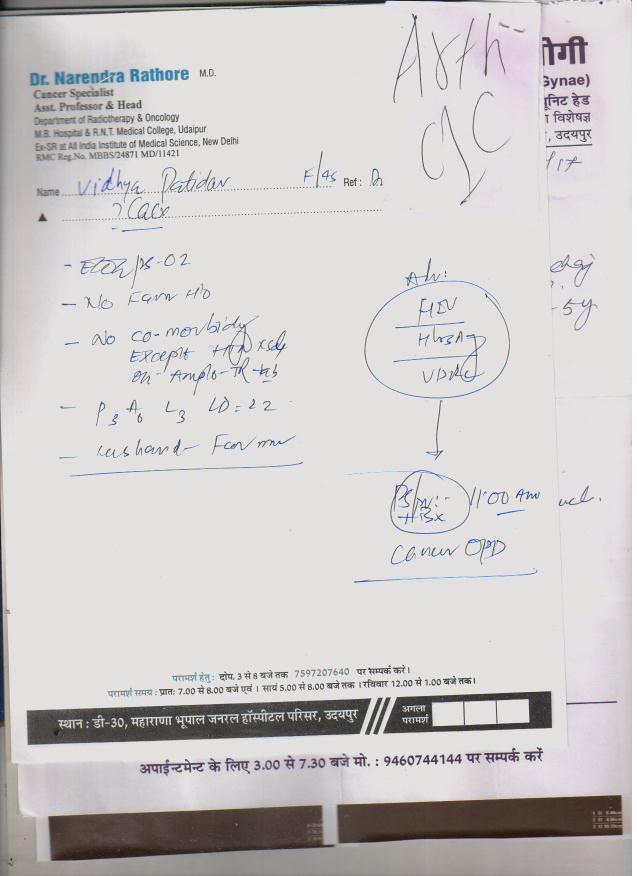 Dr. Narendra Rathore M.D.
Cancer Specialist
Asst. Professor & Head
Department of Radiotherapy & Oncology
M.B. Hospital & R.N.T. Medical College, Udaipur
Ex-SR at All India Institute of Medical Science, New Delhi
RMC Reg.No. MBBS/24871 MD/11421
ोगी
Gynae)
यूनिट हेड
विशेषज्ञ
, उदयपुर
Name Vidhya Patidar F/45 Ref :
▲ ? Cacx
- No Fam H/o
- No co-morbidy
Except HTN
on Amplo-
- P3 A0 L3 LD = 22
- Husband - Farmer
Adv:
HIV
HbsAg
VDRL
11:00 Am
Cancer OPD
परामर्श हेतु : दोप. 3 से 8 बजे तक 7597207640 पर सम्पर्क करें।
परामर्श समय : प्रातः 7.00 से 8.00 बजे एवं । सायं 5.00 से 8.00 बजे तक । रविवार 12.00 से 1.00 बजे तक।
स्थान : डी-30, महाराणा भूपाल जनरल हॉस्पीटल परिसर, उदयपुर
अगला
परामर्श
अपाईन्टमेन्ट के लिए 3.00 से 7.30 बजे मो. : 9460744144 पर सम्पर्क करें